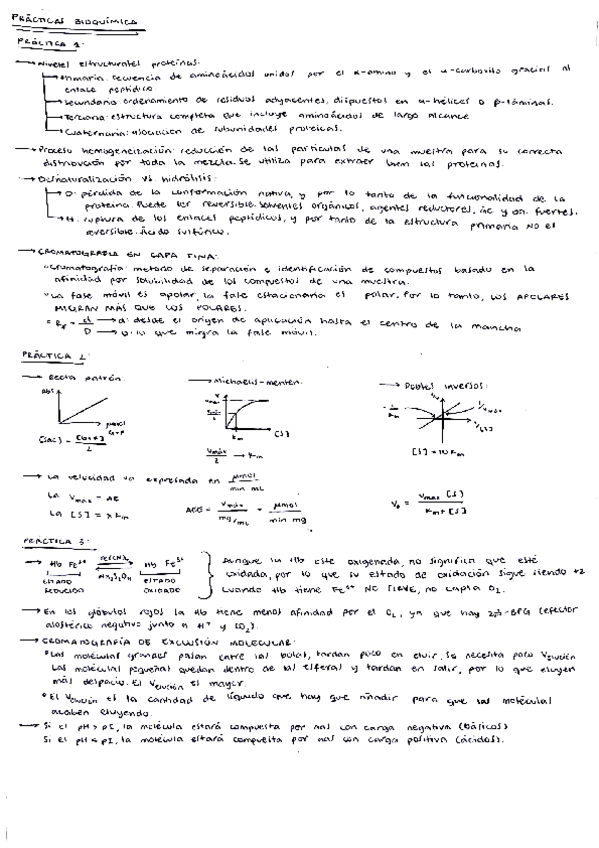 PRÁCTICAS BIOQUÍMICA
PRÁCTICA 1:
→ Niveles estructurales proteínas:
→ Primaria: secuencia de aminoácidos unidos por el α-amino y el α-carboxilo gracias al
enlace peptídico
→ Secundaria: ordenamiento de residuos adyacentes, dispuestos en α-hélices o β-láminas.
→ Terciaria: estructura completa que incluye aminoácidos de largo alcance
→ Cuaternaria: asociación de subunidades proteicas.
→ Proceso homogeneización: reducción de las partículas de una muestra para su correcta
distribución por toda la mezcla. Se utiliza para extraer bien las proteínas.
→ Desnaturalización vs. hidrólisis:
→ D: pérdida de la conformación nativa, y por lo tanto de la funcionalidad de la
proteína. Puede ser reversible. Solventes orgánicos, agentes reductores, ác. y fuertes.
→ H: ruptura de los enlaces peptídicos, y por tanto de la estructura primaria NO es
reversible. Ácido sulfúrico.
→ CROMATOGRAFÍA EN CAPA FINA:
Cromatografía: método de separación e identificación de compuestos basado en la
afinidad por solubilidad de los compuestos de una muestra.
La fase móvil es apolar, la fase estacionaria es polar. Por lo tanto, LOS APOLARES
MIGRAN MÁS QUE LOS POLARES.
Rf = d/D → d: desde el origen de aplicación hasta el centro de la mancha
→ D: lo que migra la fase móvil.
PRÁCTICA 2:
→ Recta patrón: → Michaelis-menten: → Dobles inversos:
Abs Vmax Km [S] 1/Vmax 1/[S]
Vmáx/2 → Km [S] = 10 Km
→ La velocidad va expresada en μmol/min mL
La Vmax =
La [S] = x Km = Vmáx/mg/mL = μmol/min mg V0 = Vmax [S]/Km + [S]
PRÁCTICA 3:
→ Hb Fe²⁺ Hb Fe³⁺
ESTADO REDUCIDO ESTADO OXIDADO
Aunque la Hb esté oxigenada, no significa que esté
oxidada, por lo que su estado de oxidación sigue siendo +2
Cuando Hb tiene Fe³⁺ NO SIRVE, no capta O₂.
→ En los glóbulos rojos la Hb tiene menos afinidad por el O₂, ya que hay 2,3-BFG (efector
alostérico negativo junto a H⁺ y CO₂).
→ CROMATOGRAFÍA DE EXCLUSIÓN MOLECULAR:
Las moléculas grandes pasan entre las bolas, tardan poco en eluir. Se necesita poco Velución
Las moléculas pequeñas quedan dentro de las esferas y tardan en salir, por lo que eluyen
más despacio. El Velución es mayor.
El Velución es la cantidad de líquido que hay que añadir para que las moléculas
acaben eluyendo.
→ Si el pH > pI, la molécula estará compuesta por aas con carga negativa (básicos)
Si el pH < pI, la molécula estará compuesta por aas con carga positiva (ácidos).